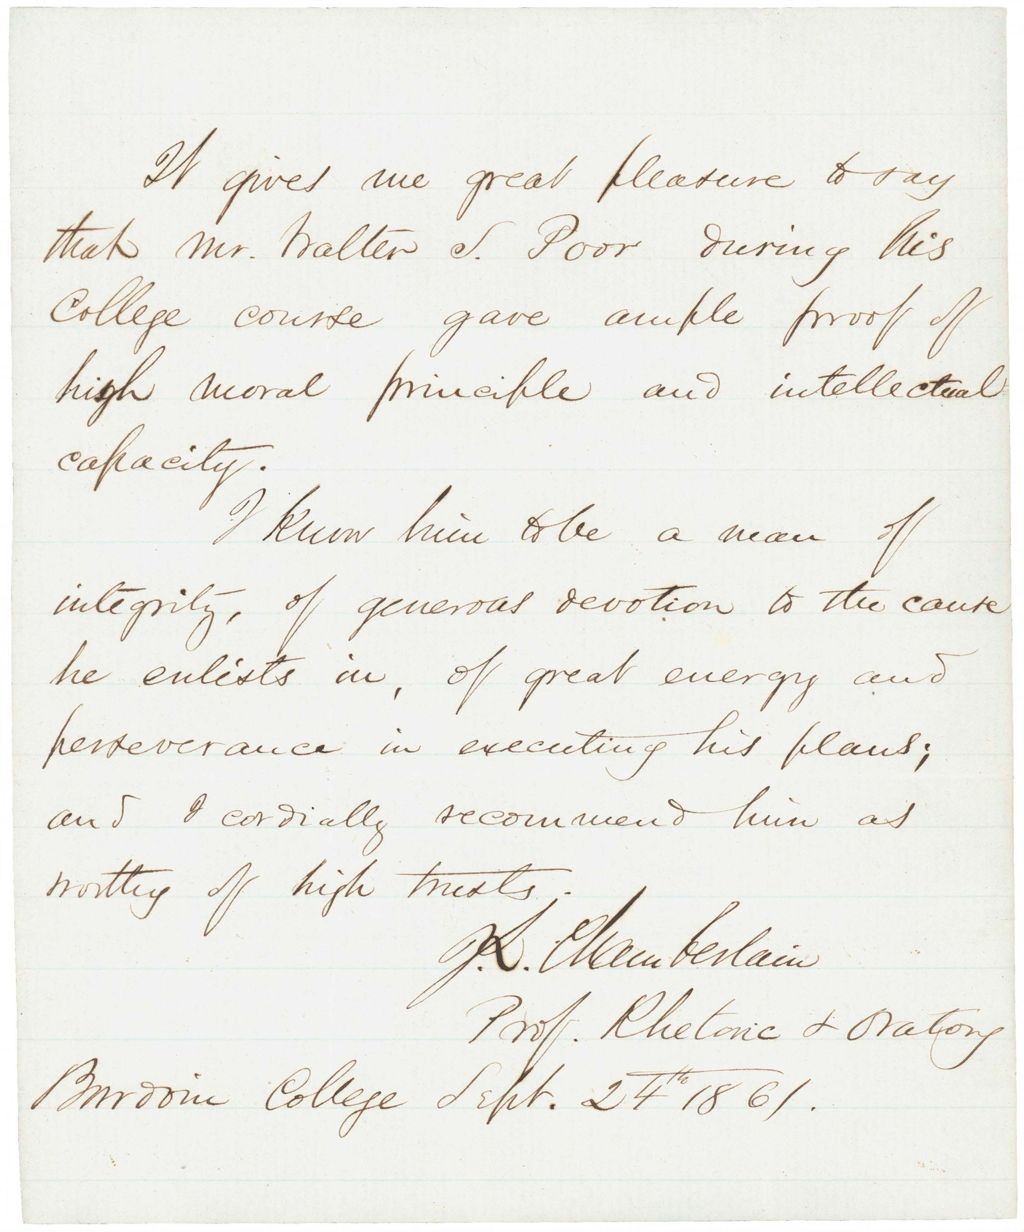 It gives me great pleasure to say
that Mr. Walter S. Poor during his
College course gave ample proof of
high moral principle and intellectual
capacity.
I know him to be a man of
integrity, of generous devotion to the cause
he enlists in, of great energy and
perseverance in executing his plans;
and I cordially recommend him as
worthy of high trusts.
J. L. Chamberlain
Prof. Rhetoric & Oratory
Bowdoin College Sept. 24th 1861.